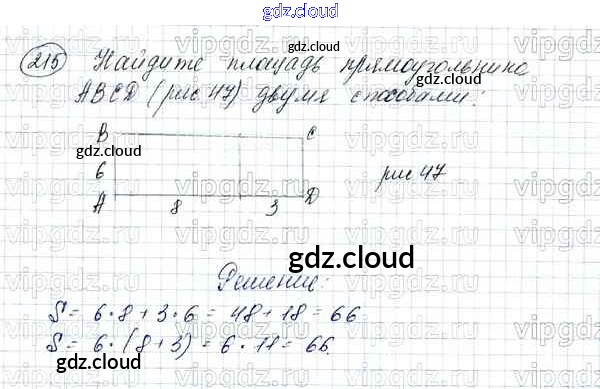 gdz.cloud
215 Найдите площадь прямоугольника
gdz.cloud
ABCD (рис 47) двумя способами:
gdz.cloud
B C
gdz.cloud gdz.cloud
6 рис 47
A 8 3 D
gdz.cloud
Решение:
S = 6 · 8 + 3 · 6 = 48 + 18 = 66
S = 6 · (8 + 3) = 6 · 11 = 66.
gdz.cloud gdz.cloud